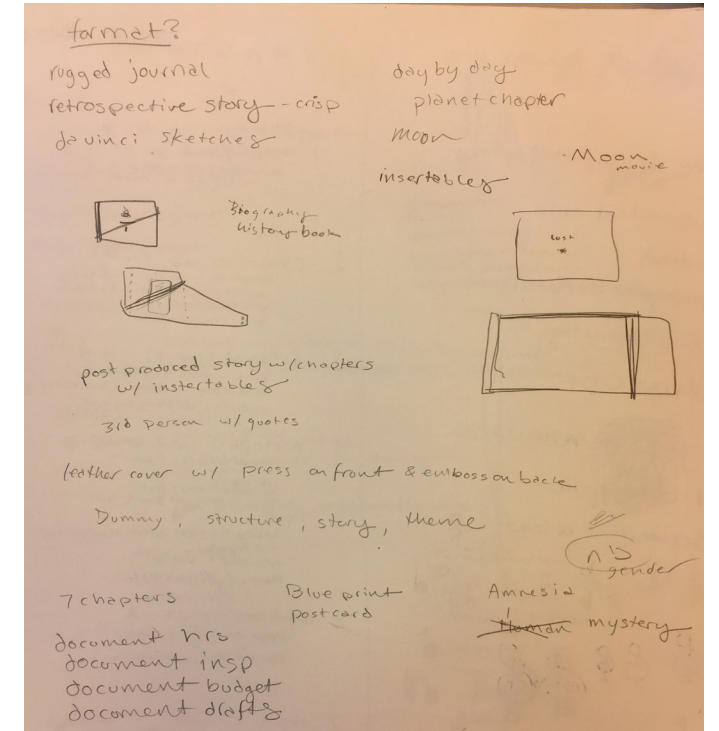 format?
rugged journal
retrospective story - crisp
davinci sketches
day by day
planet chapter
moon
insertables
Moon
movie
Biography
history book
lost
post produced story w/chapters
w/ instertables
3rd person w/ quotes
leather cover w/ press on front & emboss on back
Dummy, structure, story, theme
nb
gender
7 chapters
Blue print
postcard
Amnesia
Human mystery
document hrs
document insp
document budget
document drafts